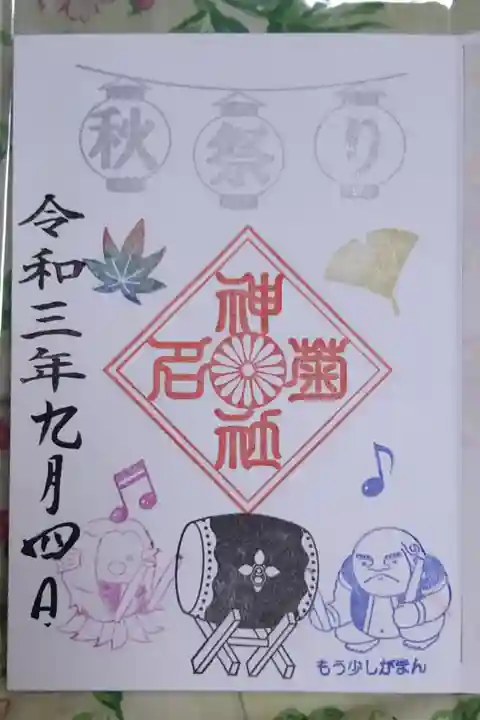 秋祭り
令和三年九月四日
菊名神社
もう少しがまん